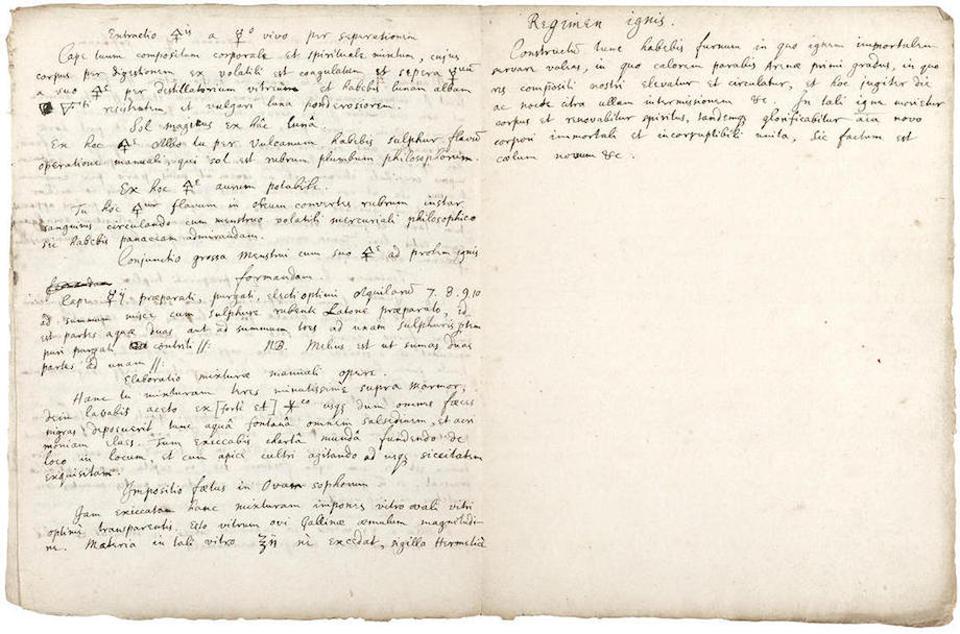 Extractio 🜍is a ☿o vivo per separationem
Cape tuum compositum corporale et spirituale mixtum, cujus
corpus per digestionem ex volatili est coagulatum et separa ☿um
a suo 🜍e per destillatorium vitreum et habebis lunam albam
▽rti resistentem et vulgari luna ponderosiorem.
Sol magicus Ex hâc lunâ.
Ex hoc 🜍e Albo tu per Vulcanum habebis sulphur flavū
operatione manuali, qui sol est rubrum plumbum philosophorum.
Ex hoc 🜍e aurum potabile.
Tu hoc 🜍ur flavum in oleum convertes rubrum instar
sanguinis circulando cum menstruo volatili mercuriali philosophico
sic habebis panaceam admirandam.
Conjunctio grossa menstrui cum suo 🜍e ad prolem ignis
formandam
Cape ☿ij præparati, purgati, electi optimi Aquilarū 7. 8. 9. 10
ad summum misce cum sulphure rubente Latone præparato, id
est partes aquæ duas aut ad summum tres ad unam sulphuris ptem
puri purgati contriti //: NB. Melius est ut sumas duas
partes ad unam //:
Elaboratio mixturæ manuali opere.
Hanc tu mixturam teres minutissime supra marmor,
dein lavabis aceto ex [forti et] ✶co usqꝫ dum omnes fæces
nigras deposuerit tunc aquâ fontanâ omnem salsedinem, et acri
moniam elues. Tum exiccabis chartâ mundâ fundendo de
loco in locum, et cum apice cultri agitando ad usqꝫ siccitatem
exquisitam.
Impositio fœtus in Ovum sophorum
Jam exiccatam hanc mixturam impones vitro ovali vitri
optimi transparentis. Esto vitrum ovi Gallinæ æmulum magnitudi
ne. Materia in tali vitro ℥ij nè excedat, sigilla Hermeticè
Regimen ignis.
Constructū tunc habebis furnum in quo ignem immortalem
servare valeas, in quo calorem parabis Arenæ primi gradus, in quo
ros compositi nostri elevetur et circuletur, et hoc jugiter die
ac nocte citra ullam intermissionem &c. In tali igne morietur
corpus et renovabitur spiritus, tandemqꝫ glorificabitur aīa novo
corpori immortali et incorruptibili unita, Sic factum est
cælum novum &c.